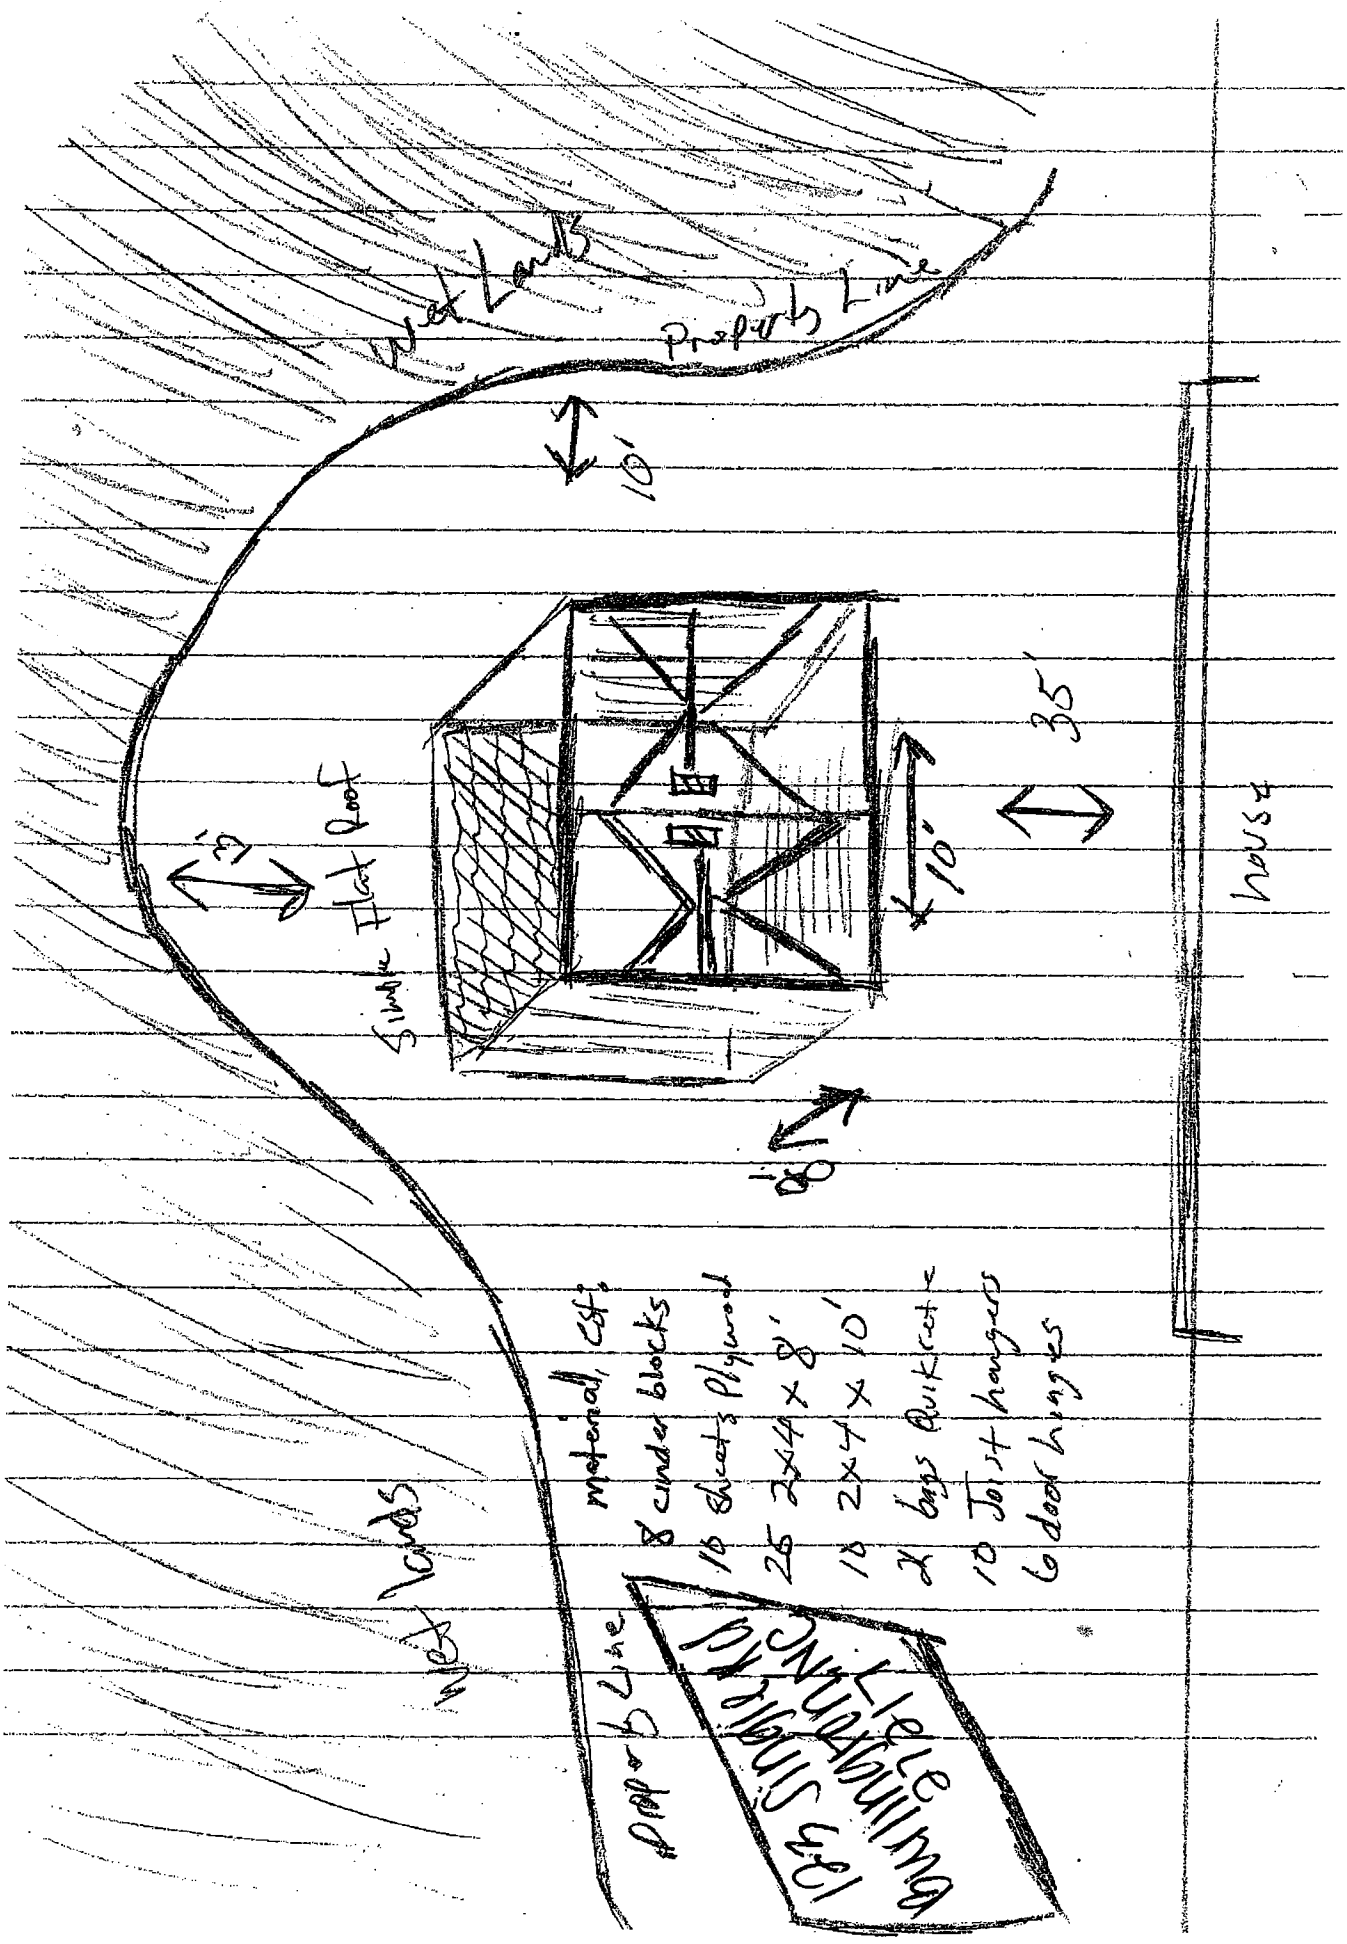 Wet Lands
Property Line
10'
Simple Flat Roof
10"
35'
house
8'
wet lands
Property Line
material, est:
8 cinder blocks
10 sheets Plywood
25 2x4 x 8'
10 2x4 x 10'
2 bags Quikrete
10 Joist hangers
6 door hinges
123 Single Rd
Burlington, NC
27217